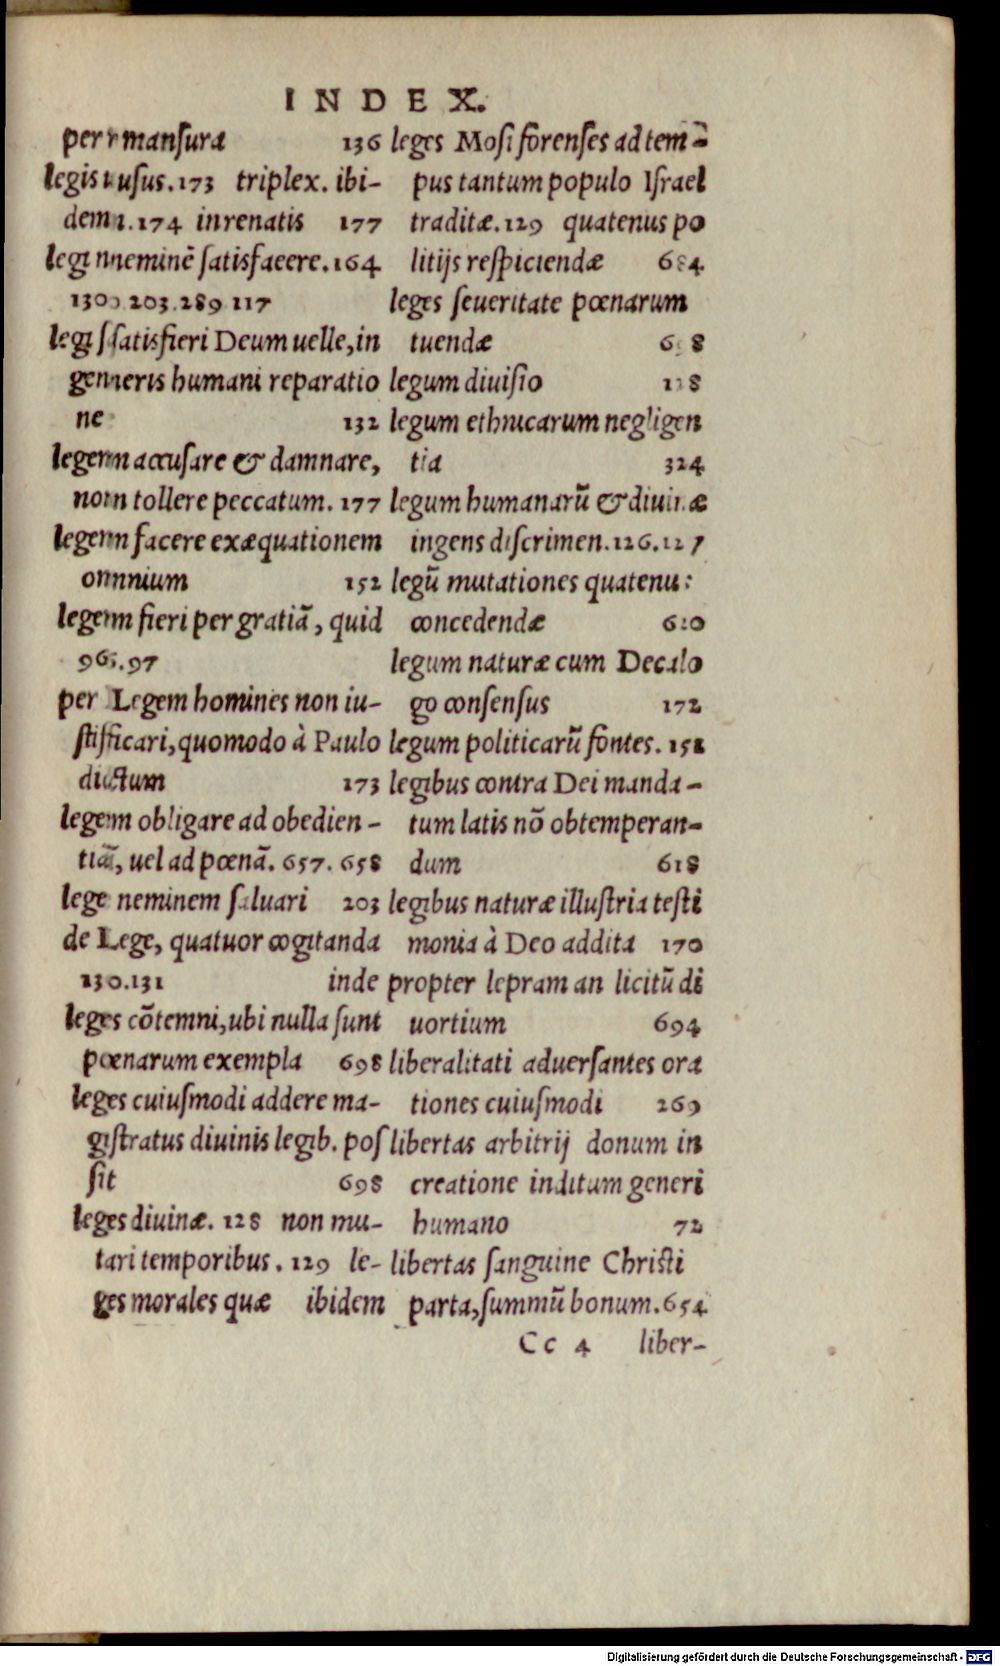 INDEX.
permansura 136
legis usus. 173 triplex. ibi-
dem. 174 in renatis 177
legi neminē satisfacere. 164
130. 203. 289. 117
legi satisfieri Deum uelle, in
generis humani reparatio
ne 132
legem accusare & damnare,
non tollere peccatum. 177
legem facere exæquationem
omnium 152
legem fieri per gratiā, quid
96. 97
per Legem homines non iu-
stificari, quomodo à Paulo
dictum 173
legem obligare ad obedien-
tiā, uel ad pœnā. 657. 658
lege neminem saluari 203
de Lege, quatuor cogitanda
130. 131 inde
leges cōtemni, ubi nulla sunt
pœnarum exempla 698
leges cuiusmodi addere ma-
gistratus diuinis legib. pos
sit 698
leges diuinæ. 128 non mu-
tari temporibus. 129 le-
ges morales quæ ibidem
leges Mosi forenses ad tem-
pus tantum populo Israel
traditæ. 129 quatenus po
litijs respiciendæ
leges seueritate pœnarum
tuendæ
legum diuisio
legum ethnicarum negligen
tia 324
legum humanarū & diuinæ
ingens discrimen. 126. 127
legū mutationes quatenus
concedendæ
legum naturæ cum Decalo
go consensus 172
legum politicarū fontes. 152
legibus contra Dei manda-
tum latis nō obtemperan-
dum 618
legibus naturæ illustria testi
monia à Deo addita 170
propter lepram an licitū di
uortium 694
liberalitati aduersantes ora
tiones cuiusmodi 269
libertas arbitrij donum in
creatione inditum generi
humano 72
libertas sanguine Christi
parta, summū bonum. 654
Cc 4 liber-
Digitalisierung gefördert durch die Deutsche Forschungsgemeinschaft - DFG